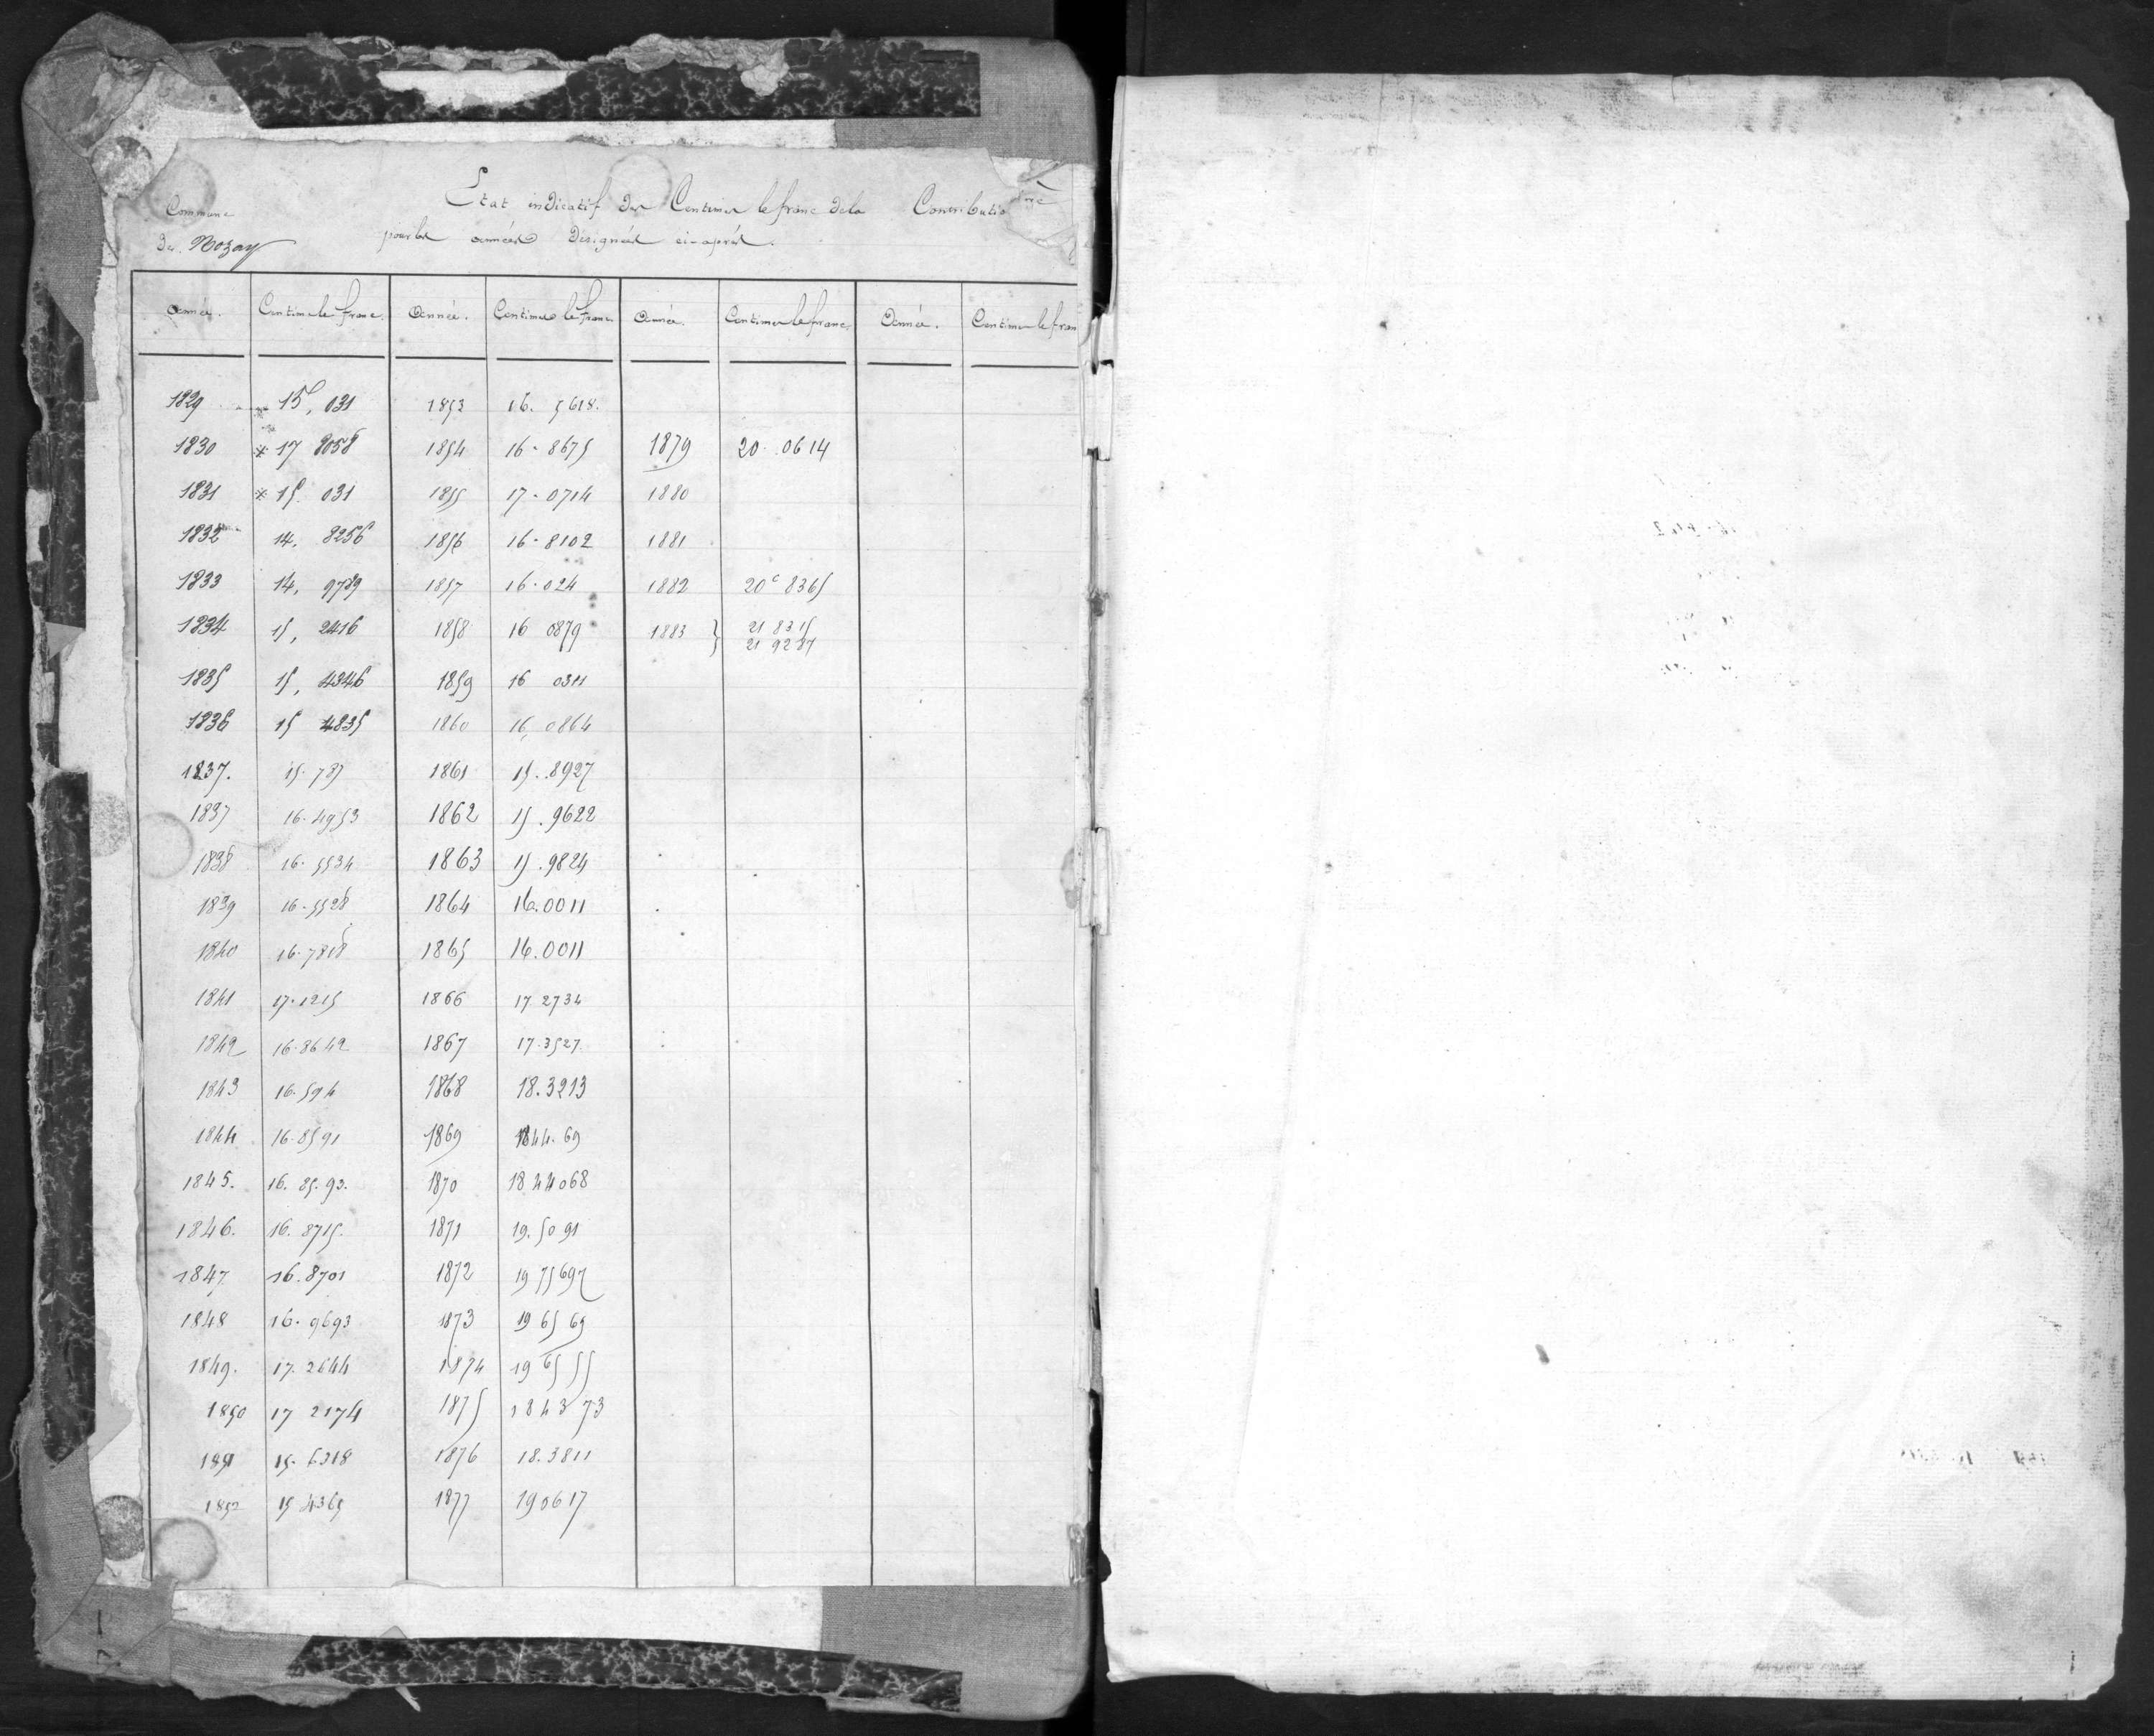 Commune
De Nozay
Etat indicatif des Centimes le franc de la Contributio
pour les années désignées ci-après.
Année. Centime le franc. Année. Centimes le franc Année. Centimes le franc. Année. Centimes le fran
1829 15c, 031 1853 16. 5618.
1830 * 17 8058 1854 16 - 8675 1879 20 . 0614
1831 * 15. 031 1855 17 - 0714 1880
1832 14, 8256 1856 16 - 8102 1881
1833 14, 9789 1857 16 - 024 1882 20c 8365
1834 15, 2416 1858 16 0879 1883 } 21 8315
21 9287
1835 15, 4346 1859 16 0311
1836 15 4835 1860 16, 0864
1837. 15. 787 1861 15. .8927
1837 16. 4953 1862 15 . 9622
1838 16. 5534 1863 15 . 9824
1839 16. 5528 1864 16.0011
1840 16. 7818 1865 16.0011
1841 17. 1215 1866 17. 2734
1842 16. 8642 1867 17. 3527.
1843 16. 594 1868 18.3213
1844 16. 8591 1869 1844. 69
1845. 16. 85. 93. 1870 18 44068
1846. 16. 8715. 1871 19. 50 91
1847. 16. 8701 1872 19 75697
1848 16. 9693 1873 19 65 69
1849. 17. 2644 1874 19 65 55
1850 17 2174 1875 1843 73
1851 15. 6318 1876 18. 3811
1852 15 4365 1877 190617